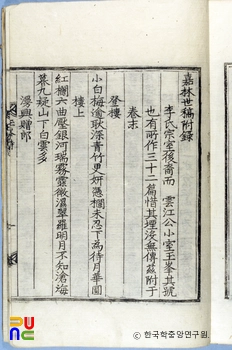 嘉林世稿附錄
李氏宗室後裔而 雲江公小室玉峯其號
也有所作三十二篇惜其堙沒無傳玆附于
卷末
登樓
小白梅逾耿深靑竹更姸憑欄未忍下爲待月華圓
樓上
紅欄六曲壓銀河瑞霧霏微濕翠羅明月不知滄海
暮九疑山下白雲多
漫興贈郎
PUNC
© 한국학중앙연구원